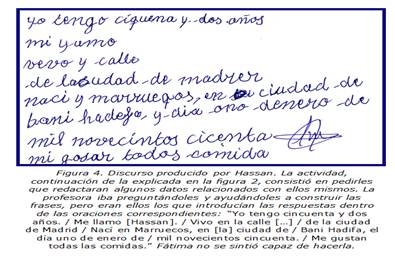 yo tengo ciquena y dos años
mi yamo
vevo y calle
de la sudad de madrer
naci y marruegos, en su ciudad de
bani hadefa, y dia ono denero de
mil novecintos cicenta
mi gosar todos comida
Figura 4. Discurso producido por Hassan. La actividad,
continuación de la explicada en la figura 2, consistió en pedirles
que redactaran algunos datos relacionados con ellos mismos. La
profesora iba preguntándoles y ayudándoles a construir las
frases, pero eran ellos los que introducían las respuestas dentro
de las oraciones correspondientes: “Yo tengo cincuenta y dos
años. / Me llamo [Hassan]. / Vivo en la calle [...] / de la ciudad
de Madrid / Nací en Marruecos, en [la] ciudad de / Bani Hadifa, el
día uno de enero de / mil novecientos cincuenta. / Me gustan
todas las comidas.” Fátima no se sintió capaz de hacerla.